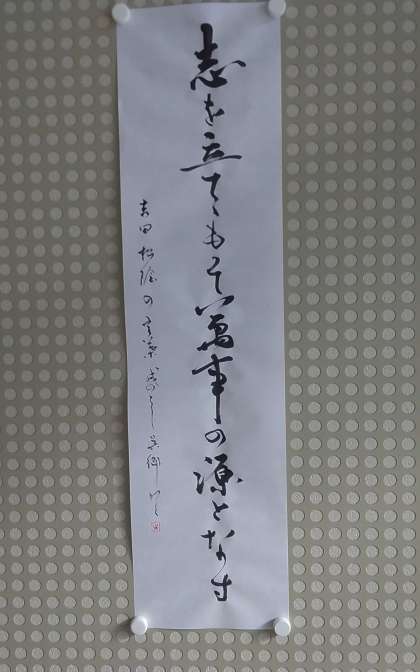 志を立てゝもって萬事の源となす
吉田松陰の言葉